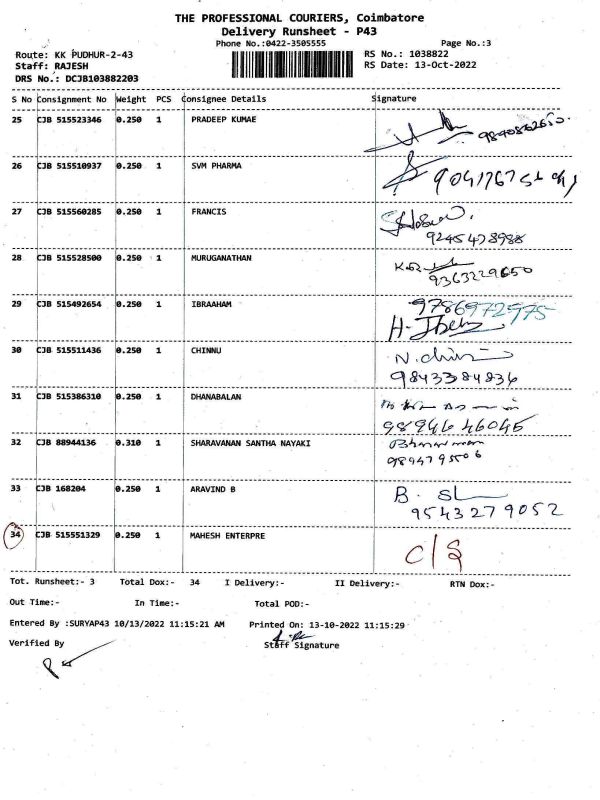 THE PROFESSIONAL COURIERS, Coimbatore
Delivery Runsheet - P43
Phone No.:0422-3505555 Page No.:3
Route: KK PUDHUR-2-43 RS No.: 1038822
Staff: RAJESH RS Date: 13-Oct-2022
DRS No.: DCJB103882203
S No Consignment No Weight PCS Consignee Details Signature
25 CJB 515523346 0.250 1 PRADEEP KUMAE
26 CJB 515510937 0.250 1 SVM PHARMA
27 CJB 515560285 0.250 1 FRANCIS
9245478988
28 CJB 515528500 0.250 1 MURUGANATHAN
9363229650
29 CJB 515492654 0.250 1 IBRAAHAM 9786972975
30 CJB 515511436 0.250 1 CHINNU
9843384836
31 CJB 515386310 0.250 1 DHANABALAN
9894646045
32 CJB 88944136 0.310 1 SHARAVANAN SANTHA NAYAKI
9894795506
33 CJB 168204 0.250 1 ARAVIND B
9543279052
34 CJB 515551329 0.250 1 MAHESH ENTERPRE
Tot. Runsheet:- 3 Total Dox:- 34 I Delivery:- II Delivery:- RTN Dox:-
Out Time:- In Time:- Total POD:-
Entered By :SURYAP43 10/13/2022 11:15:21 AM Printed On: 13-10-2022 11:15:29
Verified By Staff Signature